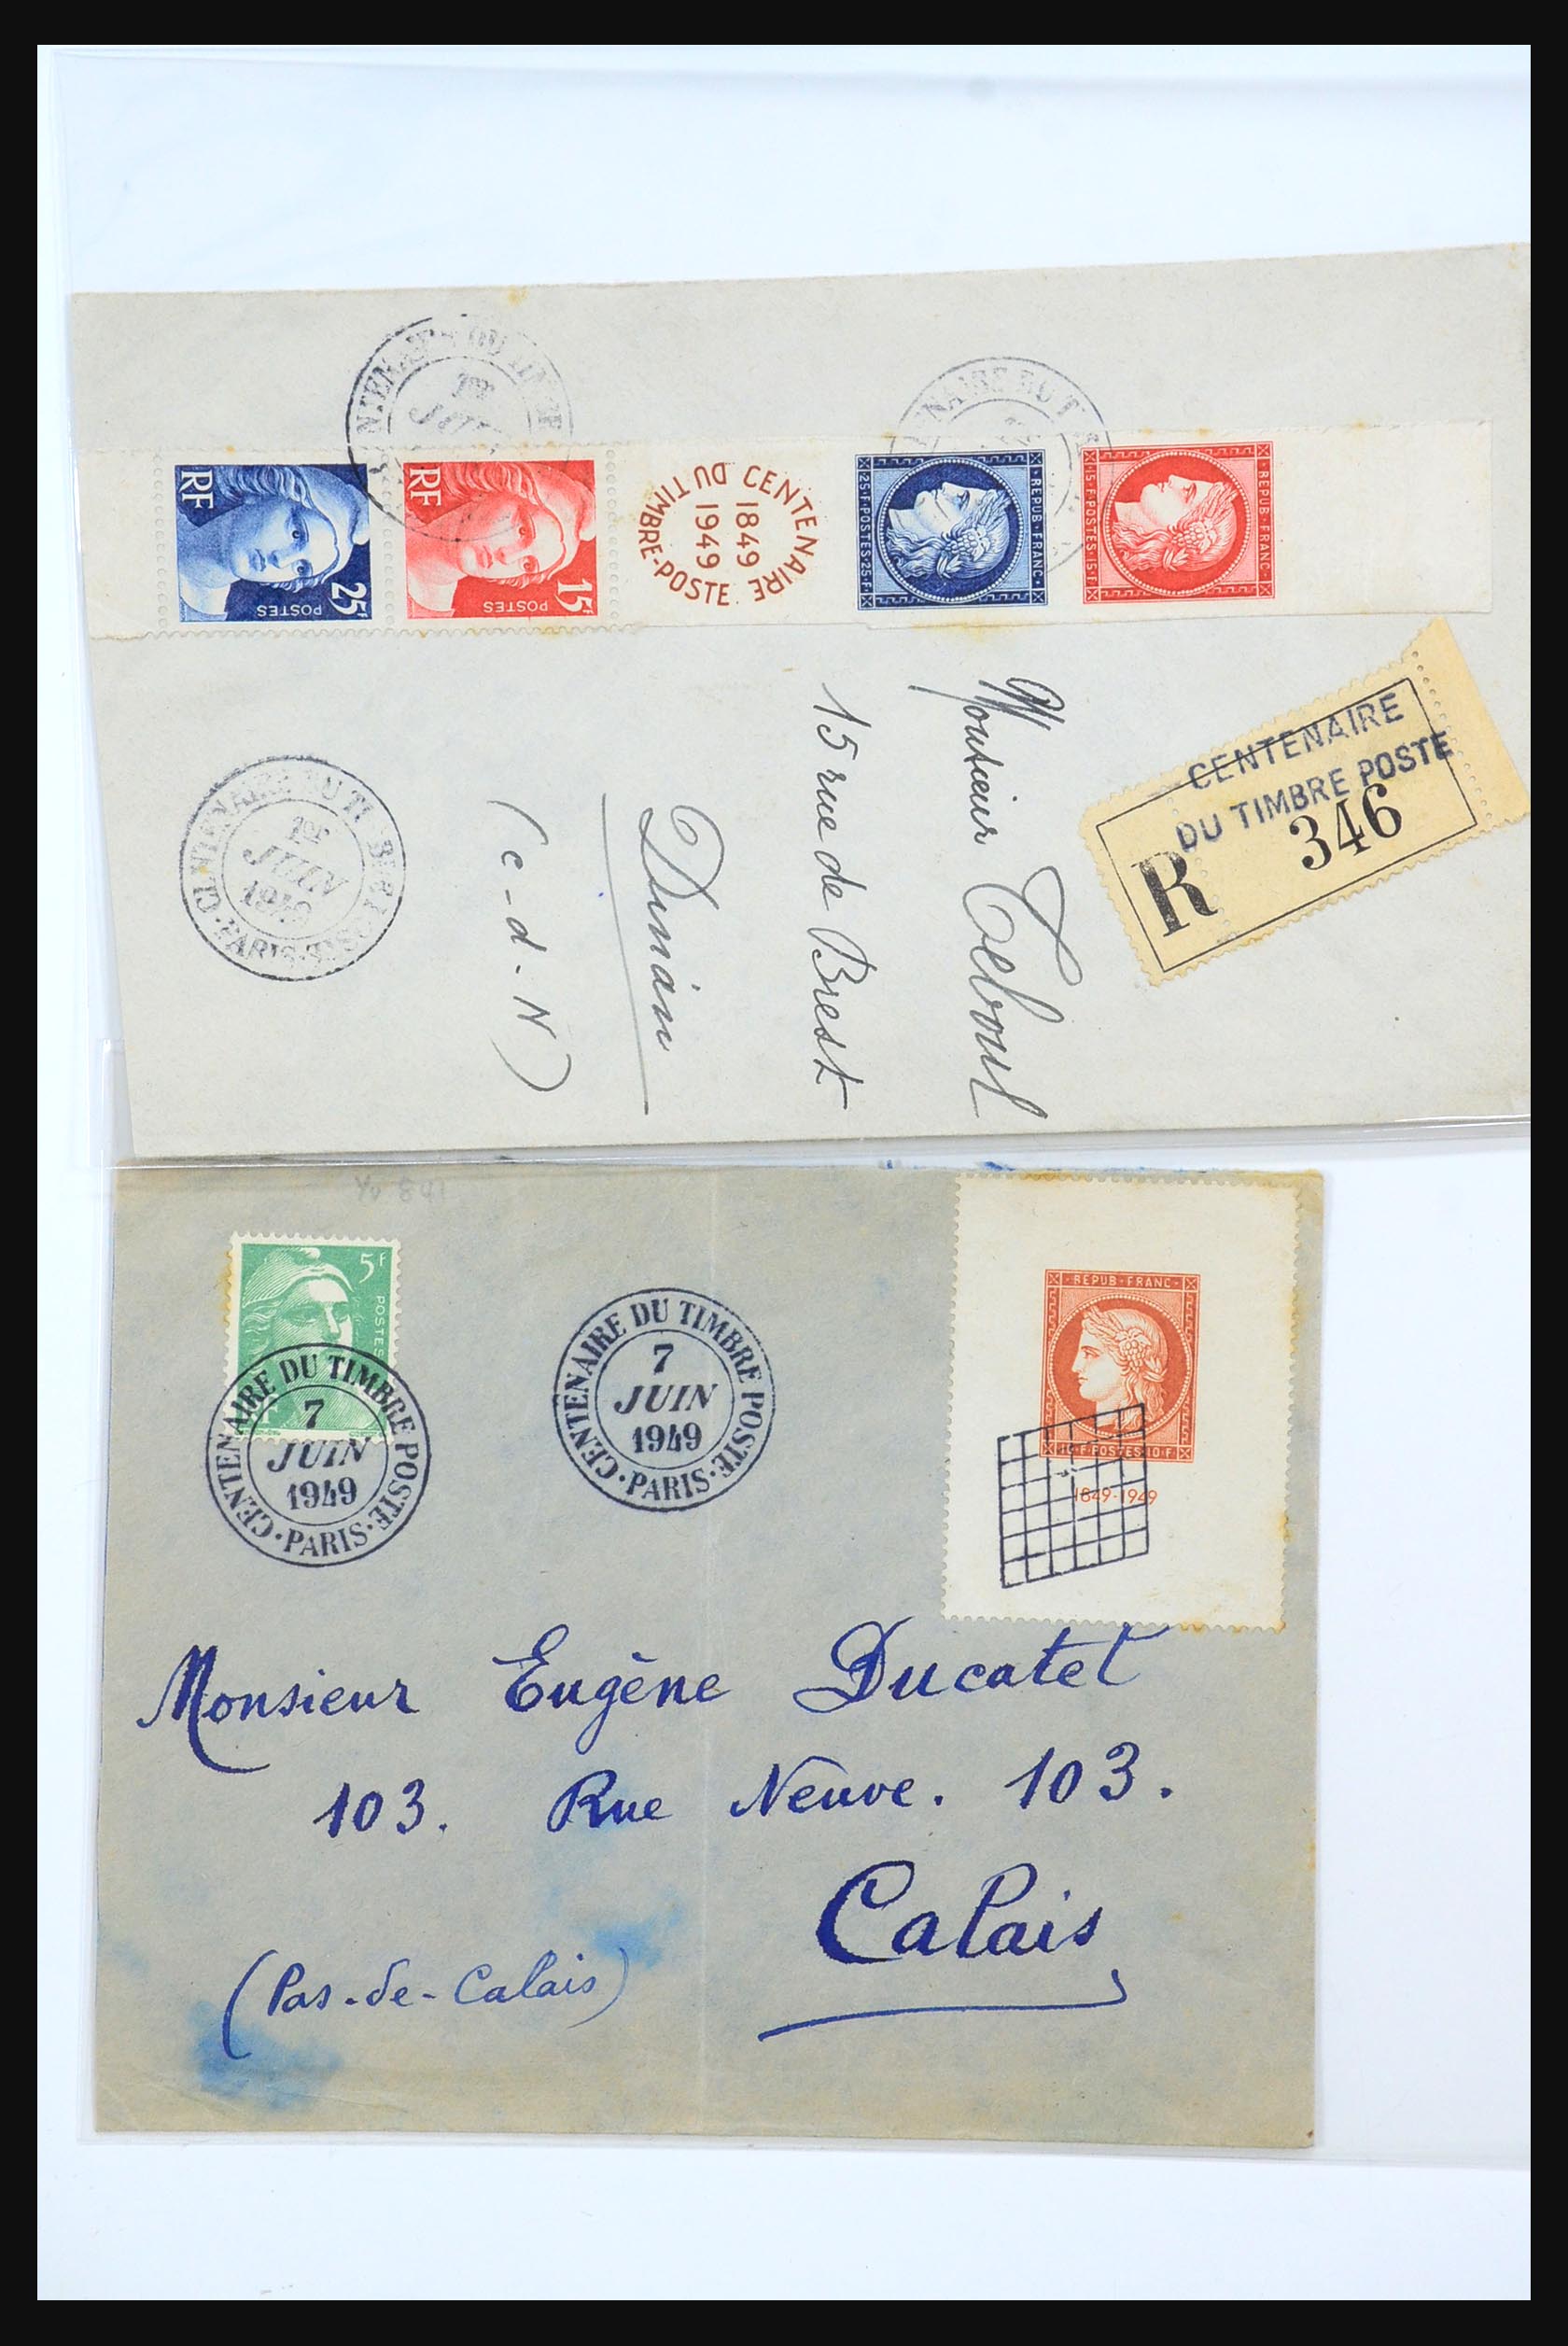 CENTENAIRE DU TI
1er
JUIN
ENAIRE DU T
RF
25F
POSTES
RF
15F
POSTES
CENTENAIRE
1849
1949
DU TIMBRE-POSTE
REPUB·FRANC·
25·F·POSTES·25·F·
REPUB·FRANC·
15·F·POSTES·15·F·
CENTENAIRE
DU TIMBRE POSTE
R 346
Monsieur Teboul
15 rue de Brest
Dinan
(c-d-N)
CENTENAIRE DU TI BRE
1er
JUIN
1949
PARIS
Yv 841
5F
POSTES
CENTENAIRE DU TIMBRE POSTE
7
JUIN
1949
·PARIS·
CENTENAIRE DU TIMBRE POSTE
7
JUIN
1949
·PARIS·
·REPUB·FRANC·
10·F·POSTES·10·F·
1849-1949
Monsieur Eugène Ducatel
103. Rue Neuve. 103.
Calais
(Pas-de-Calais)